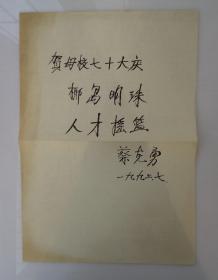 贺母校七十大庆
椰岛明珠
人才摇篮
蔡克勇
一九九六.七